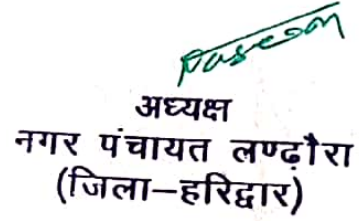 अध्यक्ष
नगर पंचायत लण्ढ़ौरा
(जिला–हरिद्वार)